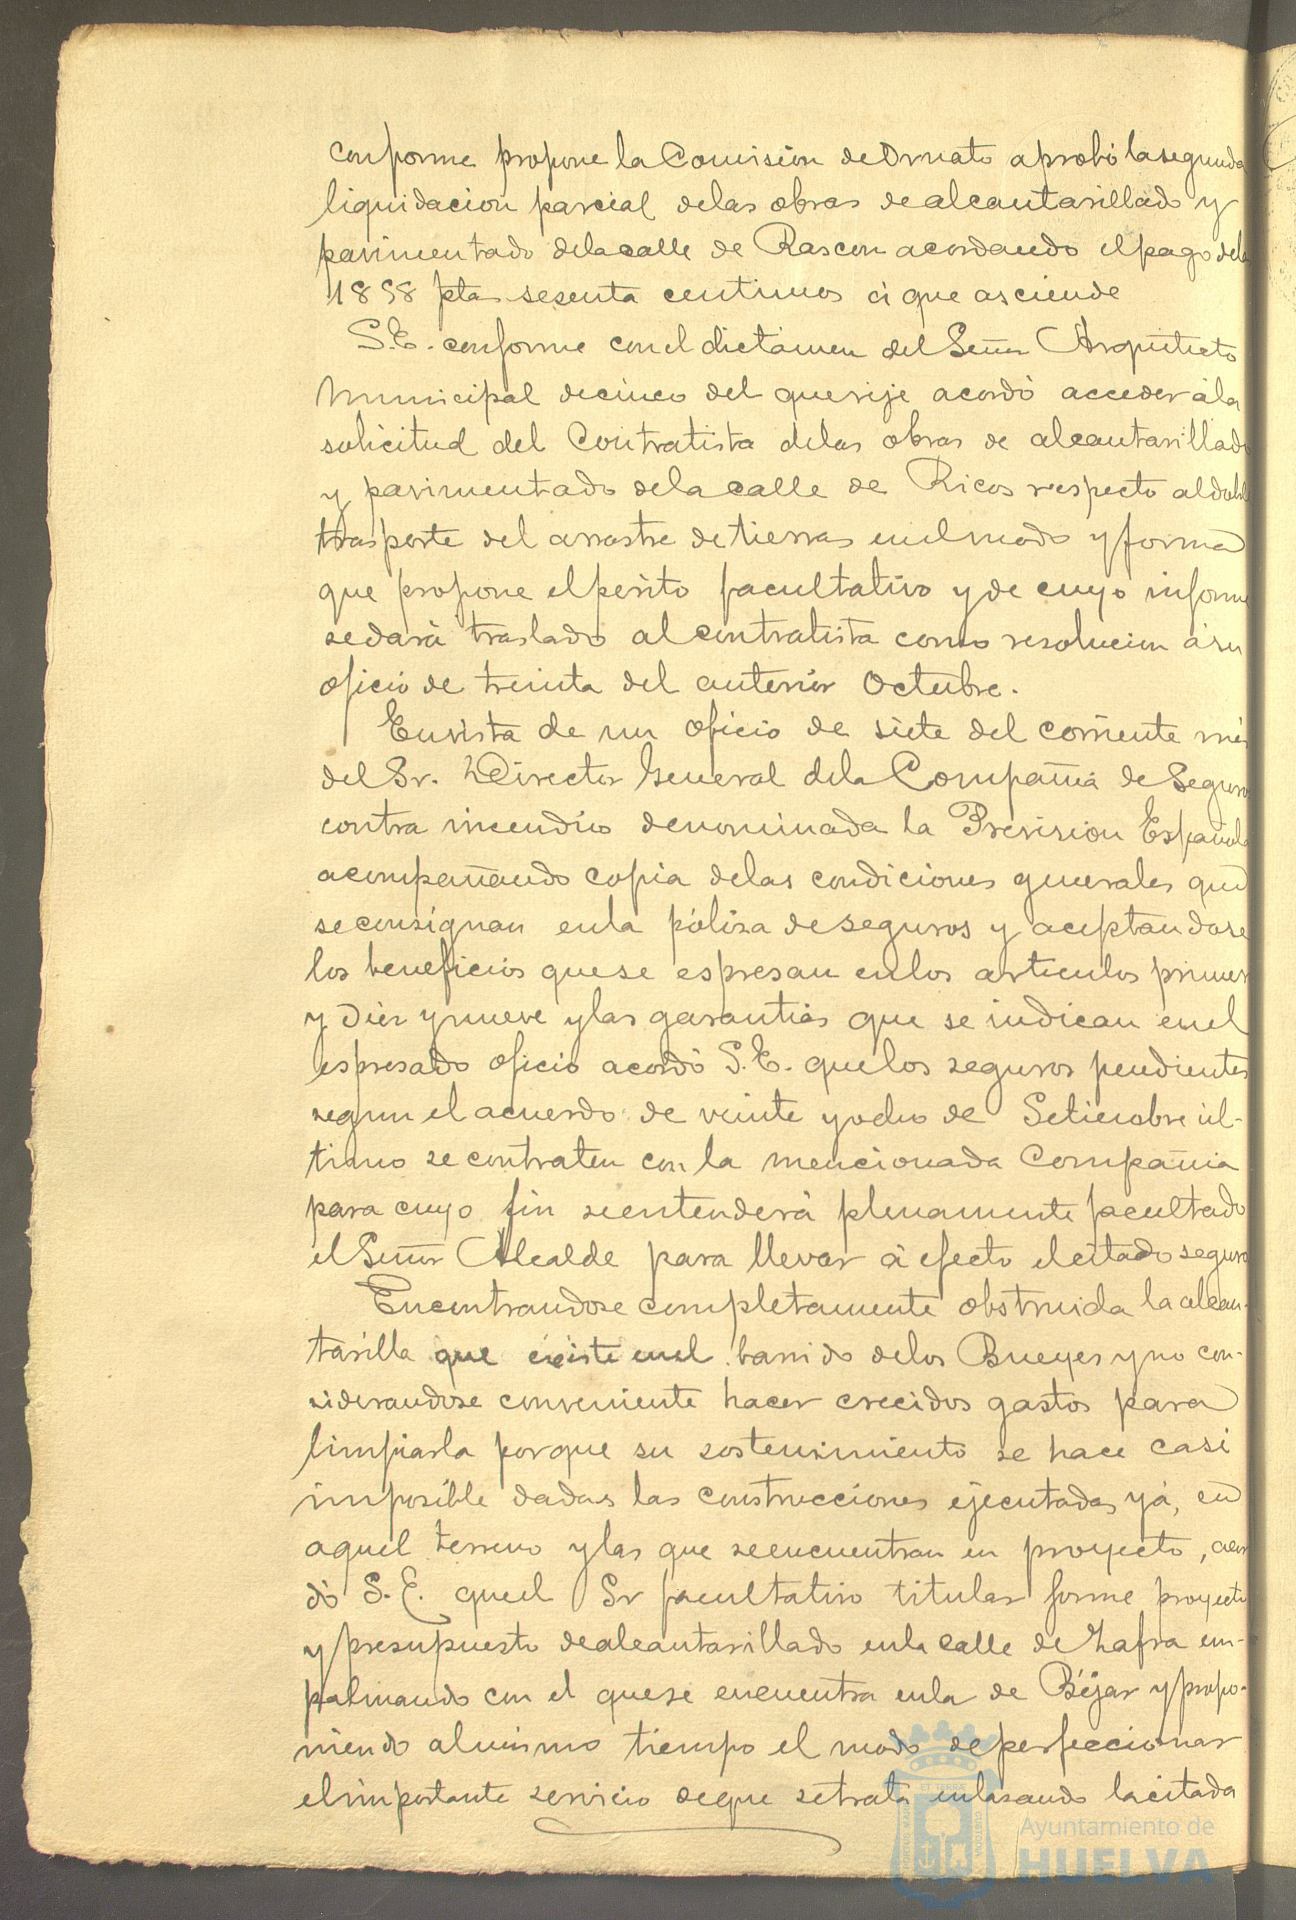 conforme propone la Comisión de Ornato aprobó la segunda
liquidacion parcial de las obras de alcantarillado y
pavimentado de la calle de Rascon acordando el pago de las
1898 ptas sesenta centimos á que asciende
S.E. conforme con el dictámen del Señor Arquitecto
Municipal de cinco del que rije acordó acceder á la
solicitud del Contratista de las obras de alcantarillado
y pavimentado de la calle de Ricos respecto al doble
trasporte del arrastre de tierras en el modo y forma
que propone el périto facultativo y de cuyo informe
se dará traslado al contratista como resolucion á su
oficio de treinta del anterior Octubre.
En vista de un oficio de siete del corriente mes
del Sr. Director General de la Compañia de Seguros
contra incendios denominada la Prevision Española
acompañando copia de las condiciones generales que
se consignan en la póliza de seguros y aceptandose
los beneficios que se espresan en los articulos primero
y diez y nueve y las garantias que se indican en el
espresado oficio acordó S.E. que los seguros pendientes
segun el acuerdo de veinte y ocho de Setiembre úl-
timo se contraten con la mencionada Compañia
para cuyo fin se entenderá plenamente facultado
el Señor Alcalde para llevar á efecto el citado seguro
Encontrandose completamente obstruida la alcan-
tarilla que existe en el barrio de los Bueyes y no con-
siderandose conveniente hacer crecidos gastos para
limpiarla porque su sostenimiento se hace casi
imposible dadas las construcciones ejecutadas yá, en
aquel terreno y las que se encuentran en proyecto, acor
dó S.E. que el Sr facultativo titular forme proyecto
y presupuesto de alcantarillado en la calle de Zafra em-
palmando con el que se encuentra en la de Béjar y propo-
niendo al mismo tiempo el modo de perfeccionar
el importante servicio de que se trata enlazando la citada
Ayuntamiento de
HUELVA